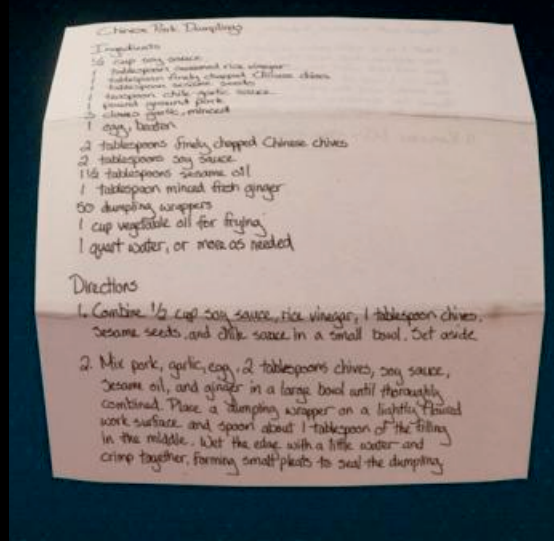 Chinese Pork Dumplings
Ingredients
1/2 cup soy sauce
1 tablespoon seasoned rice vinegar
1 tablespoon finely chopped Chinese chives
1 tablespoon sesame seeds
1 teaspoon chile-garlic sauce
1 pound ground pork
3 cloves garlic, minced
1 egg, beaten
2 tablespoons finely chopped Chinese chives
2 tablespoons soy sauce
1 1/2 tablespoons sesame oil
1 tablespoon minced fresh ginger
50 dumpling wrappers
1 cup vegetable oil for frying
1 quart water, or more as needed
Directions
1. Combine 1/2 cup soy sauce, rice vinegar, 1 tablespoon chives,
sesame seeds, and chile sauce in a small bowl. Set aside
2. Mix pork, garlic, egg, 2 tablespoons chives, soy sauce,
sesame oil, and ginger in a large bowl until thoroughly
combined. Place a dumpling wrapper on a lightly floured
work surface and spoon about 1 tablespoon of the filling
in the middle. Wet the edge with a little water and
crimp together, forming small pleats to seal the dumpling.